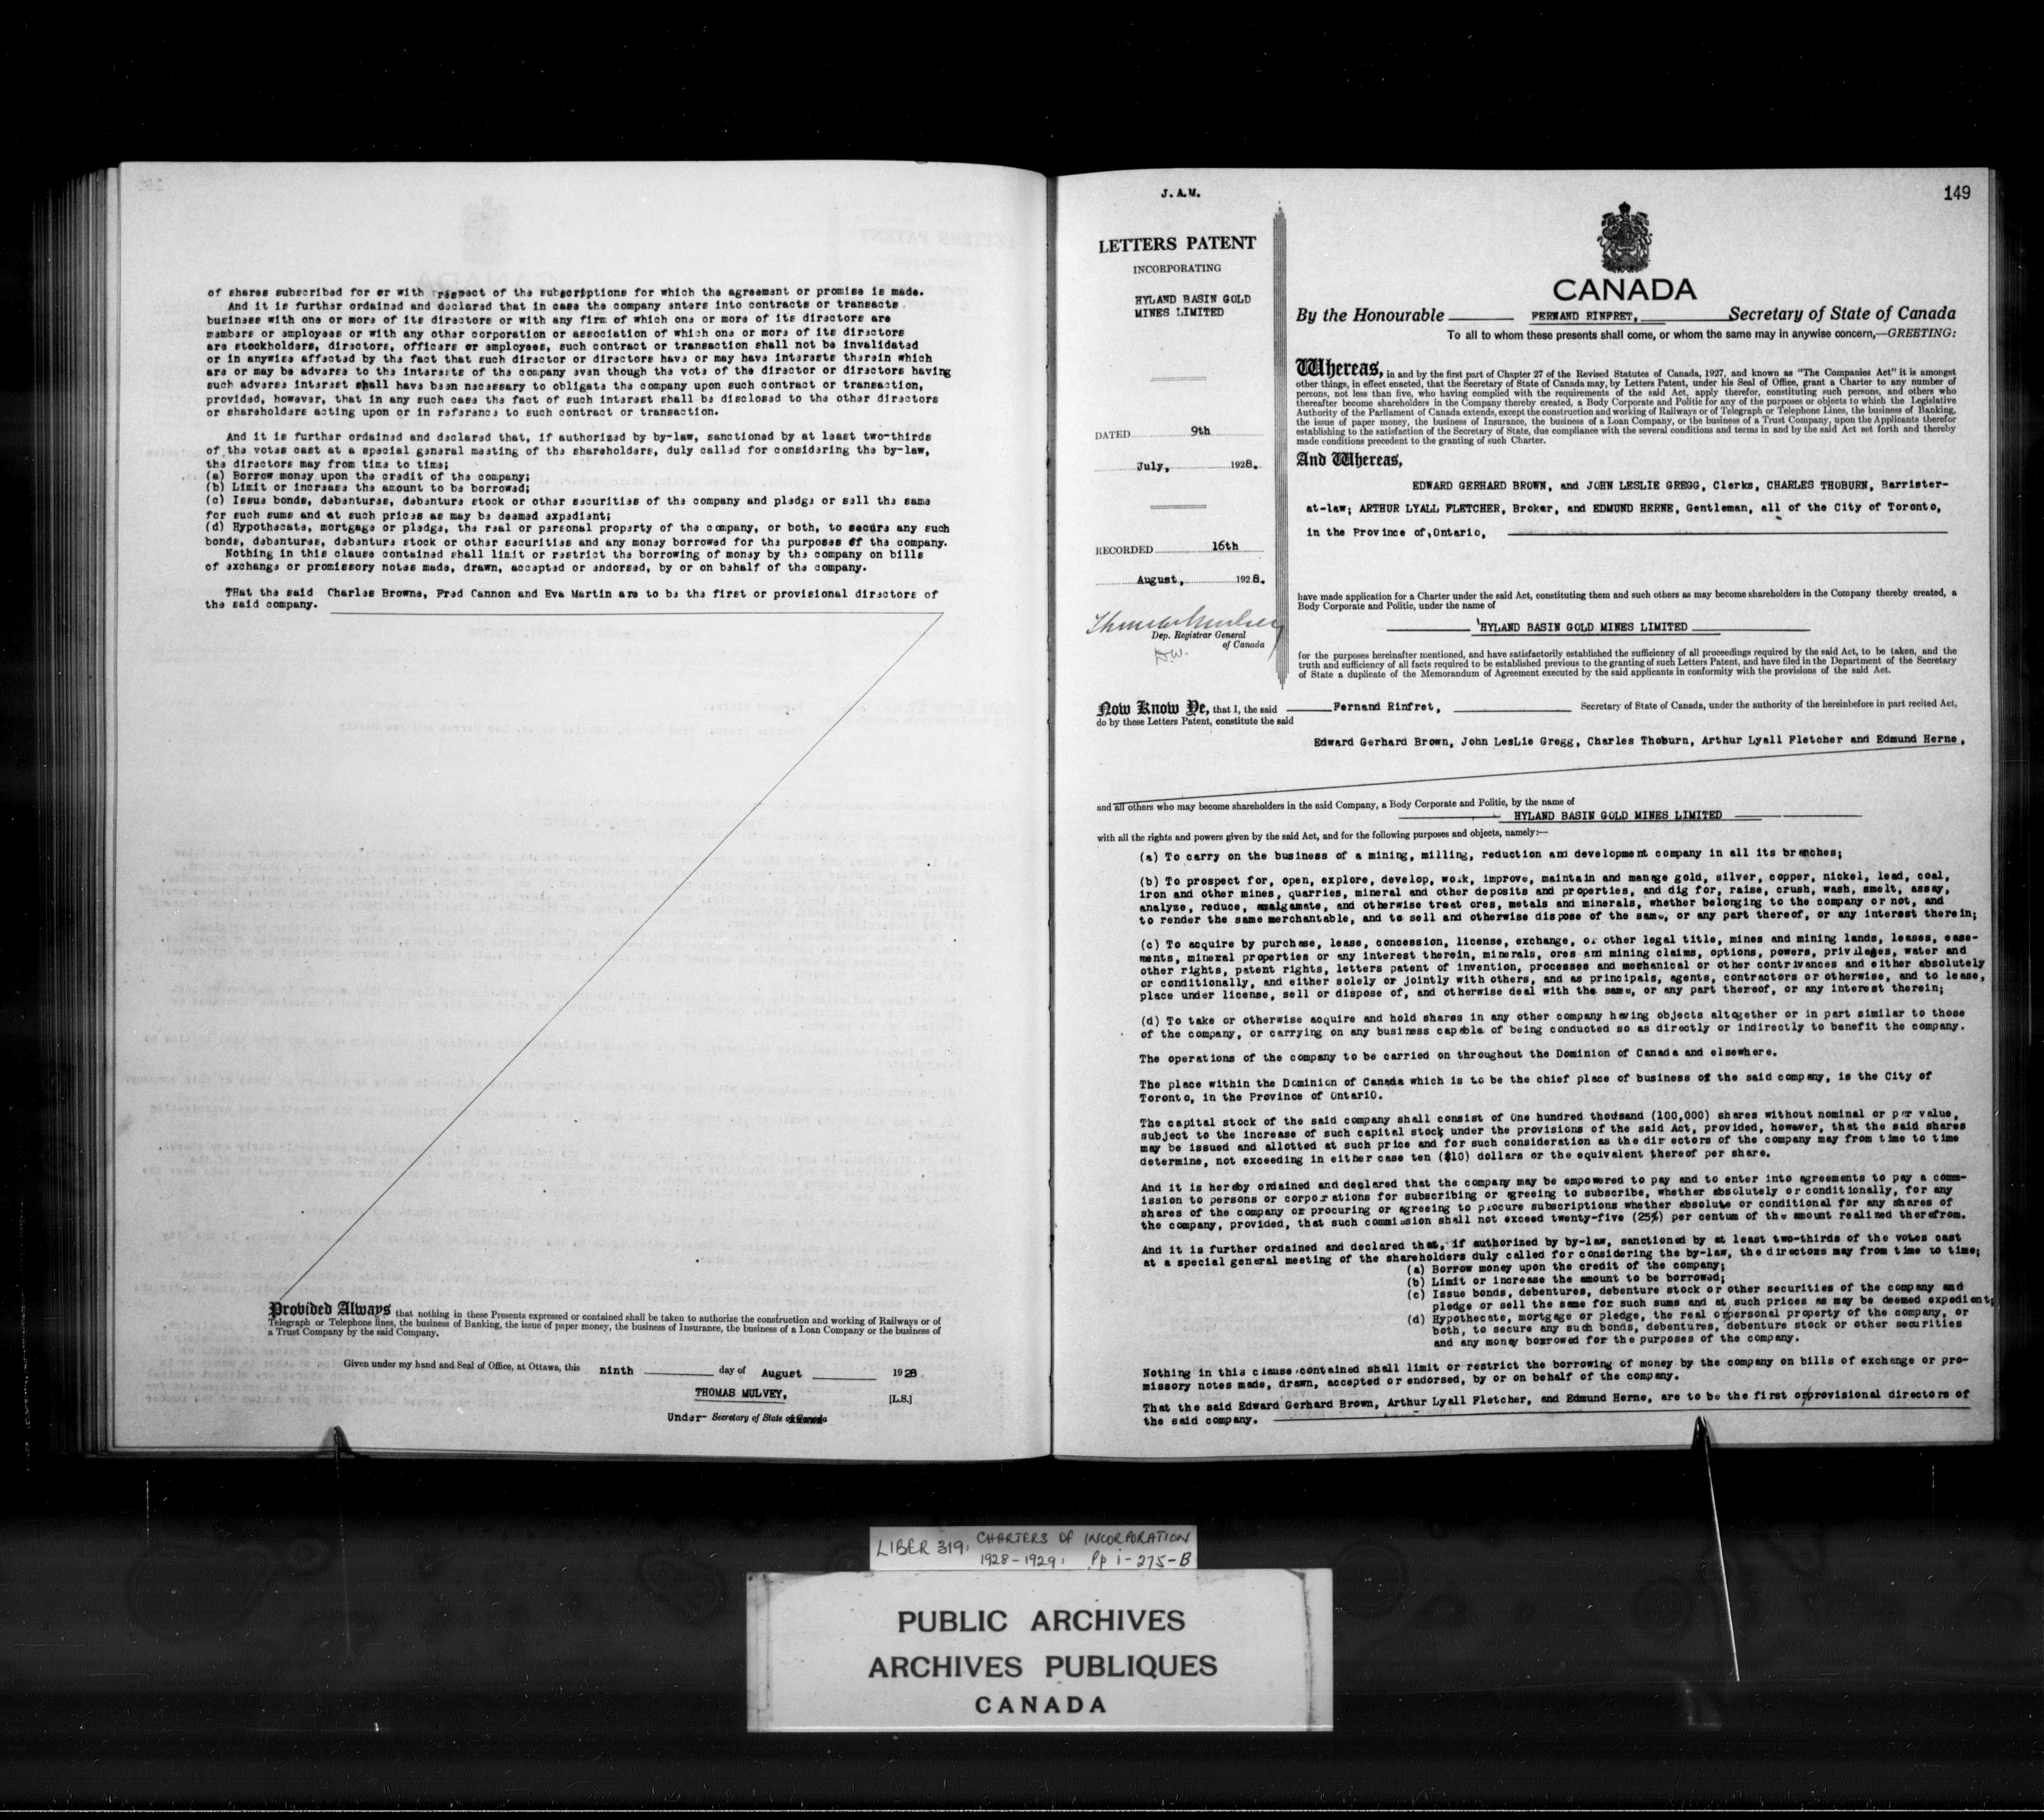 of shares subscribed for or with respect of the subscriptions for which the agreement or promise is made.
And it is further ordained and declared that in case the company enters into contracts or transacts
business with one or more of its directors or with any firm of which one or more of its directors are
members or employees or with any other corporation or association of which one or more of its directors
are stockholders, directors, officers or employees, such contract or transaction shall not be invalidated
or in anywise affected by the fact that such director or directors have or may have interests therein which
are or may be adverse to the interests of the company even though the vote of the director or directors having
such adverse interest shall have been necessary to obligate the company upon such contract or transaction,
provided, however, that in any such case the fact of such interest shall be disclosed to the other directors
or shareholders acting upon or in reference to such contract or transaction.
And it is further ordained and declared that, if authorized by by-law, sanctioned by at least two-thirds
of the votes cast at a special general meeting of the shareholders, duly called for considering the by-law,
the directors may from time to time;
(a) Borrow money upon the credit of the company;
(b) Limit or increase the amount to be borrowed;
(c) Issue bonds, debentures, debenture stock or other securities of the company and pledge or sell the same
for such sums and at such prices as may be deemed expedient;
(d) Hypothecate, mortgage or pledge, the real or personal property of the company, or both, to secure any such
bonds, debentures, debenture stock or other securities and any money borrowed for the purposes of the company.
Nothing in this clause contained shall limit or restrict the borrowing of money by the company on bills
of exchange or promissory notes made, drawn, accepted or endorsed, by or on behalf of the company.
THat the said Charles Browne, Fred Cannon and Eva Martin are to be the first or provisional directors of
the said company.
Provided Always that nothing in these Presents expressed or contained shall be taken to authorize the construction and working of Railways or of
Telegraph or Telephone lines, the business of Banking, the issue of paper money, the business of Insurance, the business of a Loan Company or the business of
a Trust Company by the said Company.
Given under my hand and Seal of Office, at Ottawa, this ninth day of August 1928.
THOMAS MULVEY, [L.S.]
Under- Secretary of State of Canada
J.A.M.
149
LETTERS PATENT
INCORPORATING
HYLAND BASIN GOLD
MINES LIMITED
DATED 9th
July, 1928.
RECORDED 16th
August, 1928.
Thomas Mulvey
Dep. Registrar General
of Canada
CANADA
By the Honourable FERNAND RINFRET, Secretary of State of Canada
To all to whom these presents shall come, or whom the same may in anywise concern,—GREETING:
Whereas, in and by the first part of Chapter 27 of the Revised Statutes of Canada, 1927, and known as "The Companies Act" it is amongst
other things, in effect enacted, that the Secretary of State of Canada may, by Letters Patent, under his Seal of Office, grant a Charter to any number of
persons, not less than five, who having complied with the requirements of the said Act, apply therefor, constituting such persons, and others who
thereafter become shareholders in the Company thereby created, a Body Corporate and Politic for any of the purposes or objects to which the Legislative
Authority of the Parliament of Canada extends, except the construction and working of Railways or of Telegraph or Telephone Lines, the business of Banking,
the issue of paper money, the business of Insurance, the business of a Loan Company, or the business of a Trust Company, upon the Applicants therefor
establishing to the satisfaction of the Secretary of State, due compliance with the several conditions and terms in and by the said Act set forth and thereby
made conditions precedent to the granting of such Charter.
And Whereas,
EDWARD GERHARD BROWN, and JOHN LESLIE GREGG, Clerks, CHARLES THOBURN, Barrister-
at-law; ARTHUR LYALL FLETCHER, Broker, and EDMUND HERNE, Gentleman, all of the City of Toronto,
in the Province of,Ontario,
have made application for a Charter under the said Act, constituting them and such others as may become shareholders in the Company thereby created, a
Body Corporate and Politic, under the name of
HYLAND BASIN GOLD MINES LIMITED
for the purposes hereinafter mentioned, and have satisfactorily established the sufficiency of all proceedings required by the said Act, to be taken, and the
truth and sufficiency of all facts required to be established previous to the granting of such Letters Patent, and have filed in the Department of the Secretary
of State a duplicate of the Memorandum of Agreement executed by the said applicants in conformity with the provisions of the said Act.
Now Know Ye, that I, the said Fernand Rinfret, Secretary of State of Canada, under the authority of the hereinbefore in part recited Act,
do by these Letters Patent, constitute the said
Edward Gerhard Brown, John LesLie Gregg, Charles Thoburn, Arthur Lyall Fletcher and Edmund Herne,
and all others who may become shareholders in the said Company, a Body Corporate and Politic, by the name of
HYLAND BASIN GOLD MINES LIMITED
with all the rights and powers given by the said Act, and for the following purposes and objects, namely:—
(a) To carry on the business of a mining, milling, reduction and development company in all its branches;
(b) To prospect for, open, explore, develop, work, improve, maintain and manage gold, silver, copper, nickel, lead, coal,
iron and other mines, quarries, mineral and other deposits and properties, and dig for, raise, crush, wash, smelt, assay,
analyze, reduce, amalgamate, and otherwise treat ores, metals and minerals, whether belonging to the company or not, and
to render the same merchantable, and to sell and otherwise dispose of the same, or any part thereof, or any interest therein;
(c) To acquire by purchase, lease, concession, license, exchange, or other legal title, mines and mining lands, leases, ease-
ments, mineral properties or any interest therein, minerals, ores and mining claims, options, powers, privileges, water and
other rights, patent rights, letters patent of invention, processes and mechanical or other contrivances and either absolutely
or conditionally, and either solely or jointly with others, and as principals, agents, contractors or otherwise, and to lease,
place under license, sell or dispose of, and otherwise deal with the same, or any part thereof, or any interest therein;
(d) To take or otherwise acquire and hold shares in any other company having objects altogether or in part similar to those
of the company, or carrying on any business capable of being conducted so as directly or indirectly to benefit the company.
The operations of the company to be carried on throughout the Dominion of Canada and elsewhere.
The place within the Dominion of Canada which is to be the chief place of business of the said company, is the City of
Toronto, in the Province of OntariO.
The capital stock of the said company shall consist of One hundred thousand (100,000) shares without nominal or par value,
subject to the increase of such capital stock under the provisions of the said Act, provided, however, that the said shares
may be issued and allotted at such price and for such consideration as the directors of the company may from time to time
determine, not exceeding in either case ten ($10) dollars or the equivalent thereof per share.
And it is hereby ordained and declared that the company may be empowered to pay and to enter into agreements to pay a comm-
ission to persons or corporations for subscribing or agreeing to subscribe, whether absolutely or conditionally, for any
shares of the company or procuring or agreeing to procure subscriptions whether absolute or conditional for any shares of
the company, provided, that such commission shall not exceed twenty-five (25%) per centum of the amount realized therefrom.
And it is further ordained and declared that, if authorized by by-law, sanctioned by at least two-thirds of the votes cast
at a special general meeting of the shareholders duly called for considering the by-law, the directors may from time to time;
(a) Borrow money upon the credit of the company;
(b) Limit or increase the amount to be borrowed;
(c) Issue bonds, debentures, debenture stock or other securities of the company and
pledge or sell the same for such sums and at such prices as may be deemed expedient;
(d) Hypothecate, mortgage or pledge, the real or personal property of the company, or
both, to secure any such bonds, debentures, debenture stock or other securities
and any money borrowed for the purposes of the company.
Nothing in this clause contained shall limit or restrict the borrowing of money by the company on bills of exchange or pro-
missory notes made, drawn, accepted or endorsed, by or on behalf of the company.
That the said Edward Gerhard Brown, Arthur Lyall Fletcher, and Edmund Herne, are to be the first or provisional directors of
the said company.
LIBER 319, CHARTERS OF INCORPORATION
1928-1929, Pp i-275-B
PUBLIC ARCHIVES
ARCHIVES PUBLIQUES
CANADA